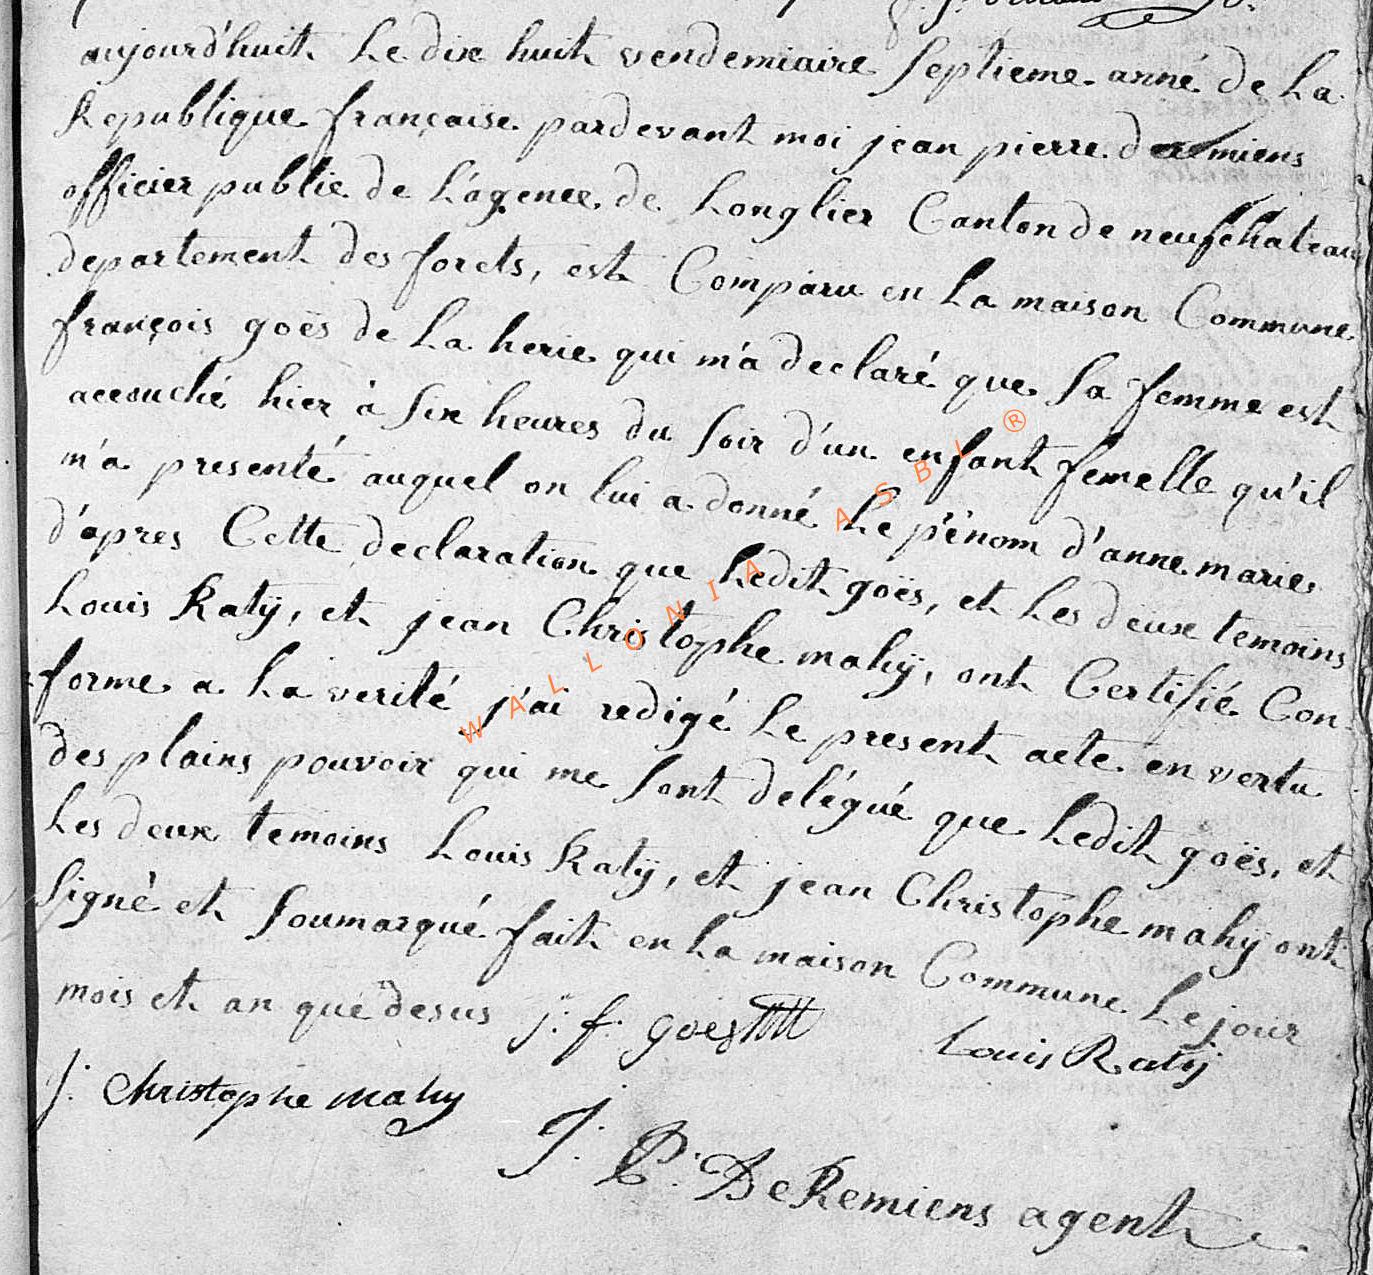 aujourd'huit le dix huit vendemiaire septieme anné de la
Republique française pardevant moi jean pierre deremiens
officier publie de l'agence de Longlier Canton de neufchateau
departement des forets, est Comparu en la maison Commune
françois goës de la herie qui m'a declaré que sa femme est
accouché hier à six heures du soir d'un enfant femelle qu'il
m'a presenté auquel on lui a donné le p'énom d'anne marie
d'apres Cette declaration que ledit goës, et les deux temoins
Louis Ratÿ, et jean Christophe mahÿ, ont Certifié Con
forme a la verité j'ai redigé le present acte en vertu
des plains pouvoir qui me sont delégué que ledit goës, et
les deux temoins Louis Ratÿ, et jean Christophe mahÿ ont
signé et soumarqué fait en la maison Commune le jour
mois et an que desus j. f. goes
Louis Ratÿ
J. Christophe mahy
J. P. DeRemiens agent
WALLONIA ASBL ®